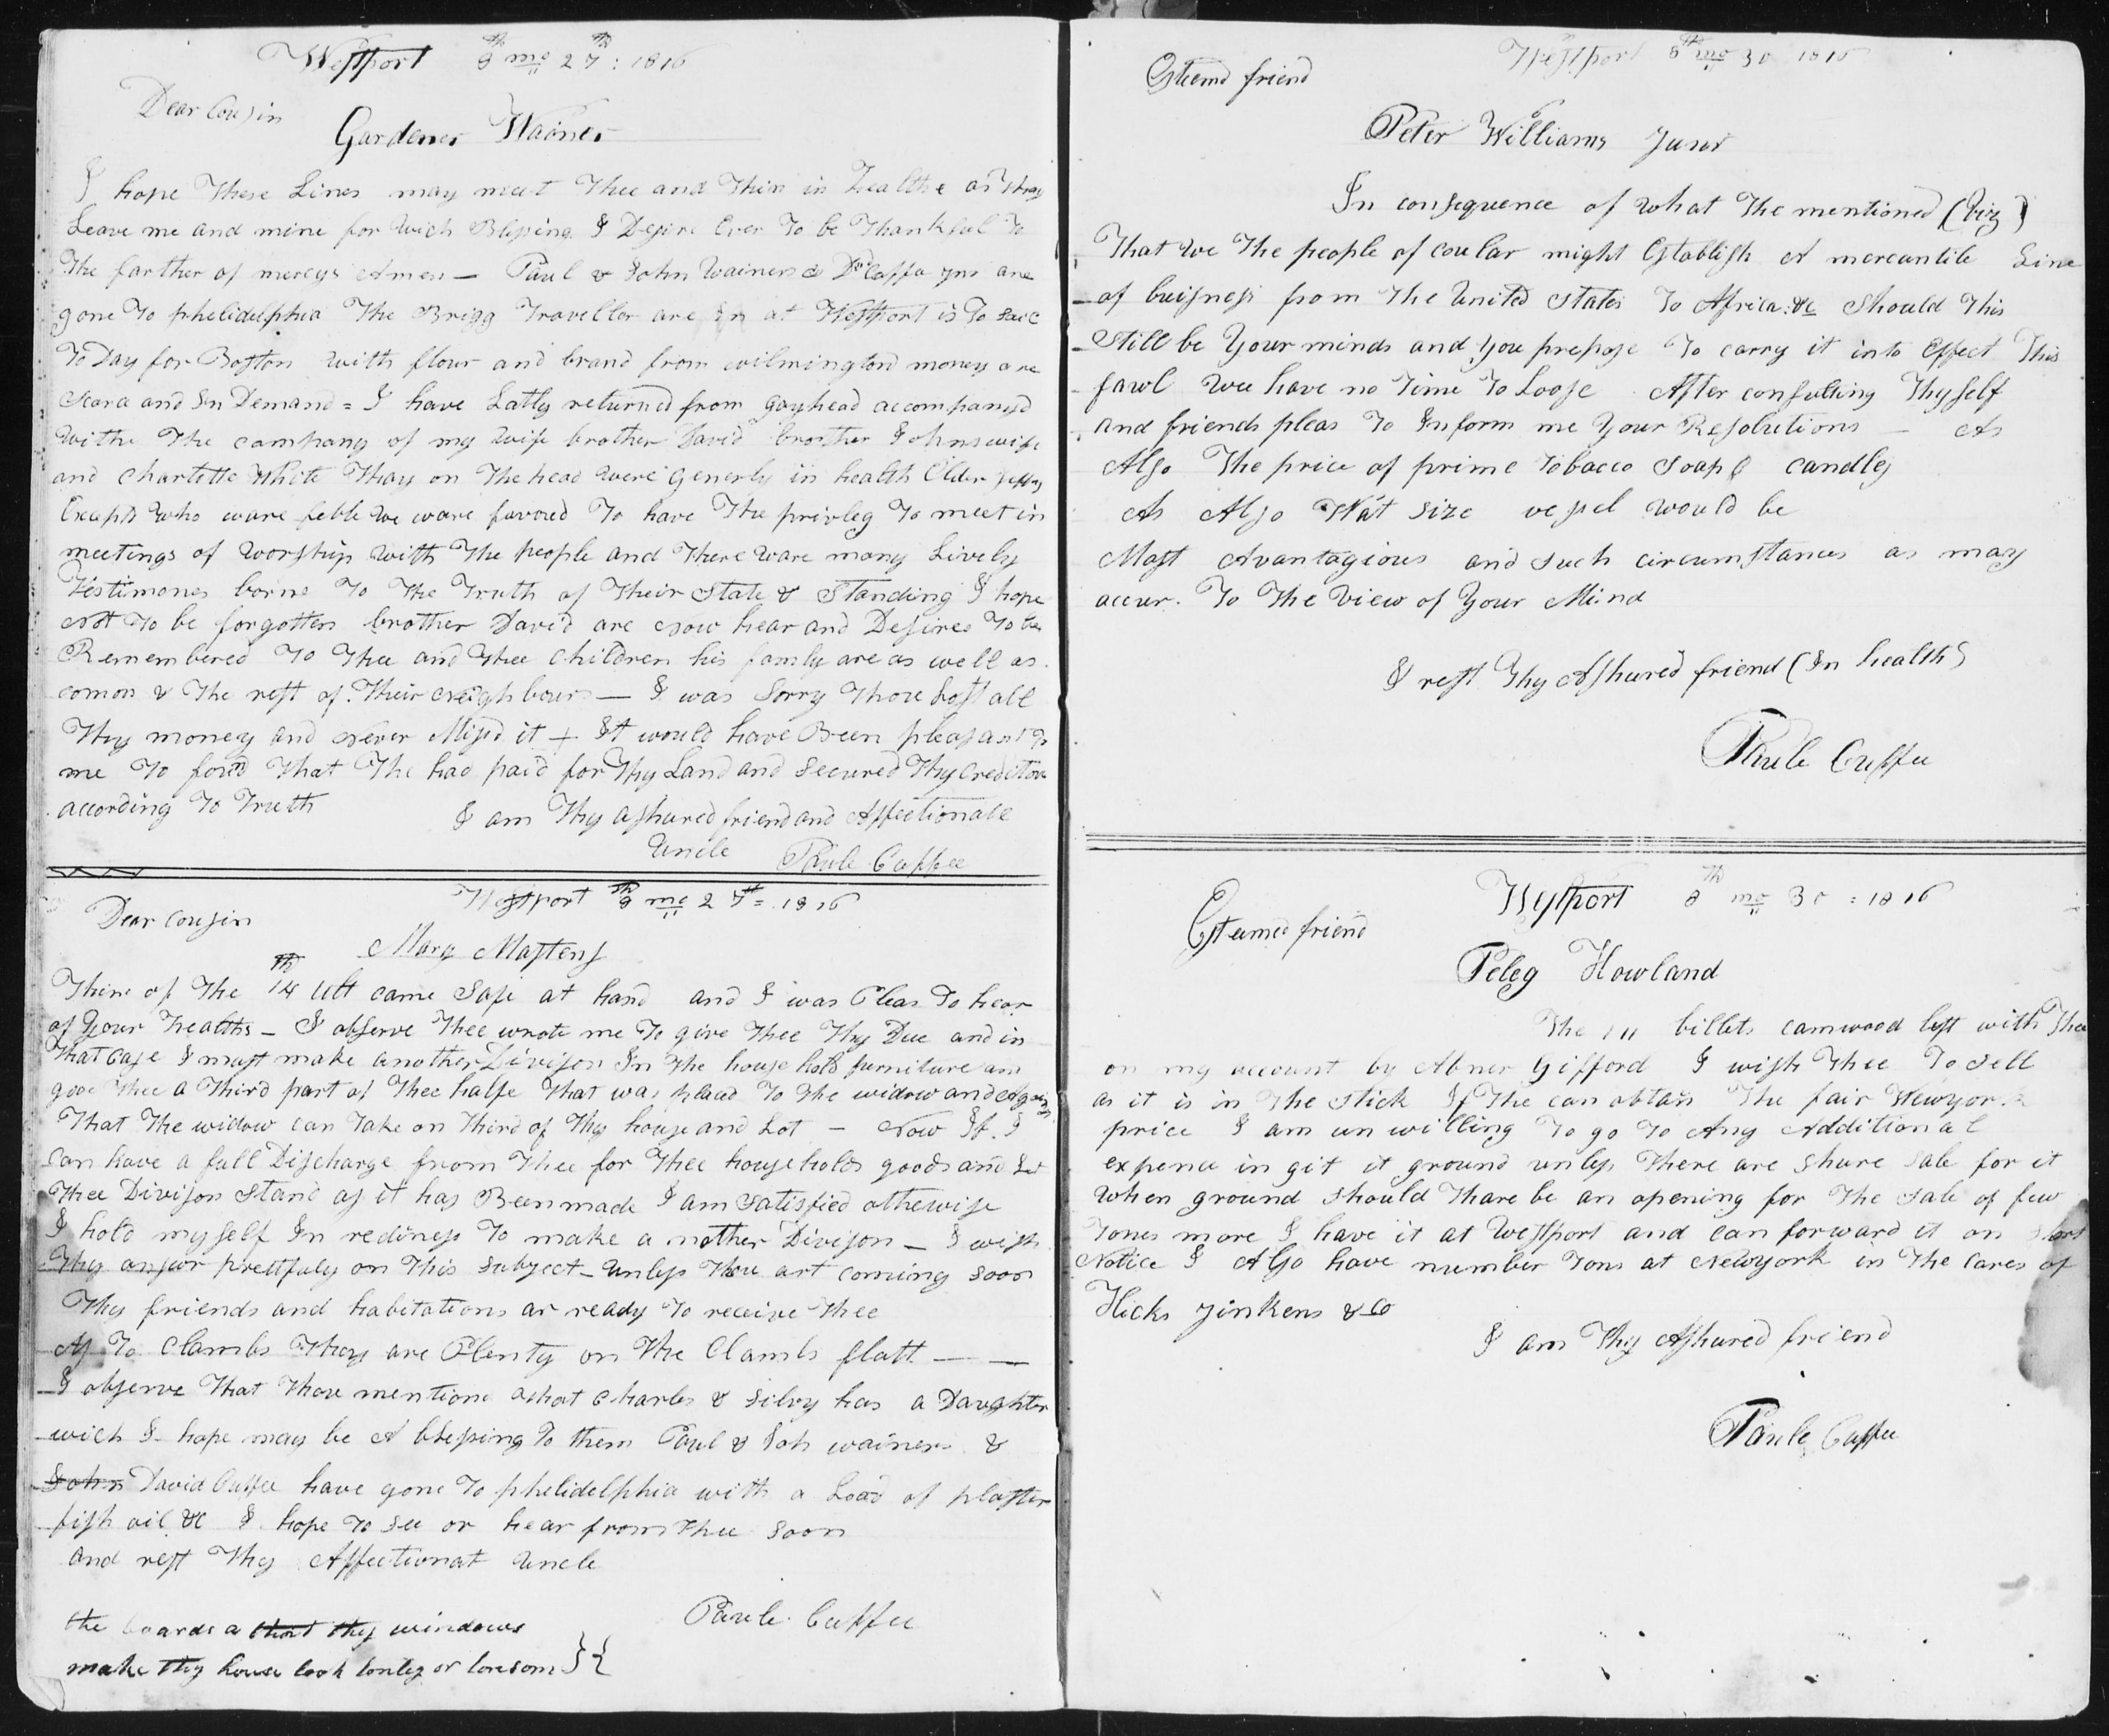 Westport 8th mo 27th : 1816
Dear Cousin
Gardener Wainer
I hope These Lines may meet Thee and Thin in health as Thay
Leave me and mine for wich Blessing I Desire Ever To be Thankful To
The farther of mercys Amen — Paul & John Wainers & Dd Cuffe jns are
gone To phelidelphia The Brigg Traveller are In at Westport is To Sail
To Day for Boston with flour and brand from wilmington money are
Scarce and In Demand = I have Latly returned from gayhead accompanyed
withe The company of my wife brother David brother Johns wife
and Charlotte White Thay on The head were Generly in health Elder Jeffrey
Excepts who ware feble We ware favoured To have The privleg To meet in
meetings of worship with The people and There ware many Lively
Testimones borne To The Truth of Their State & Standing I hope
Not To be forgotten brother David are Now hear and Desires To be
Remembered To Thee and Thee Children his family are as well as
comon & The rest of Their Neighbours — I was Sorry Thou Lost all
Thy money and Never Missd it + It would have Been pleasant To
me To found That The had paid for Thy Land and Secured Thy Creditors
according To Truth
I am Thy ashured friend and Affectionate
Uncle Paule Cuffee
Westport 8th mo 27th = 1816
Dear Cousin
Mary Mastens
Thine of The 14th Ult came Safe at hand and I was Pleas To hear
of Your healths — I observe Thee wrote me To give Thee Thy Due and in
That Case I must make another Divison In The house hold furniture and
give Thee a Third part of Thee halfe That was placed To The widow and Again
That The widow can Take on Third of Thy house and Lot — Now If I
Can have a full Discharge from Thee for Thee households goods and Let
Thee Divison Stand as it has Been made I am Satisfied othewise
I hold myself In rediness To make a nother Divison — I wish
Thy answr prettyuly on This Subject — Unless Thou art coming Soon
Thy friends and habitations ar ready To receive Thee
As To Clambs Thay are Plenty on The Clambs flatt — —
I observe That Thou mentions that Charles & Silvy has a Daughter
wich I hope may be A blessing To them Paul & Joh wainers &
John David Cuffee have gone To phelidelphia with a Load of plaster
fish oil &c I hope To See or hear from Thee Soon
and rest Thy Affectionat Uncle
Paule Cuffee
the boards a thort thy windows
make thy house look lonly or lonsom
Westport 8th mo 30 1816
Esteemd friend
Peter Williams Junor
In consequence of what The mentioned (Viz)
That we The people of coular might Establish A mercantile Line
of buisness from The United States To Africa: &c Should This
Still be Your minds and You prepose To carry it into Effect This
fawl wee have no Time To Loose After consulting Thyself
and friends pleas To Inform me Your Resolutions — As
Also The price of prime Tobacco Soap & candles
As Also What Size vessel would be
Most Avantagious and Such circumstances as may
accur. To The View of Your Mind
I rest Thy Ashured friend (In health)
Paule Cuffee
Westport 8th mo 30 : 1816
Esteemed friend
Peleg Howland
The 111 billets camwood left with Thee
on my account by Abner Gifford I wish Thee To Sell
as it is in The Stick If The can obtain The fair Newyork
price I am un willing To go To Any Additional
expence in git it ground unless There are Shure Sale for it
When ground Should Thare be an opening for The Sale of few
Tones more I have it at Westport and can forward it on Short
Notice I Also have number Tons at Newyork in The Cares of
Hicks Jinkens & Co
I am Thy Ashured friend
Paule Cuffee